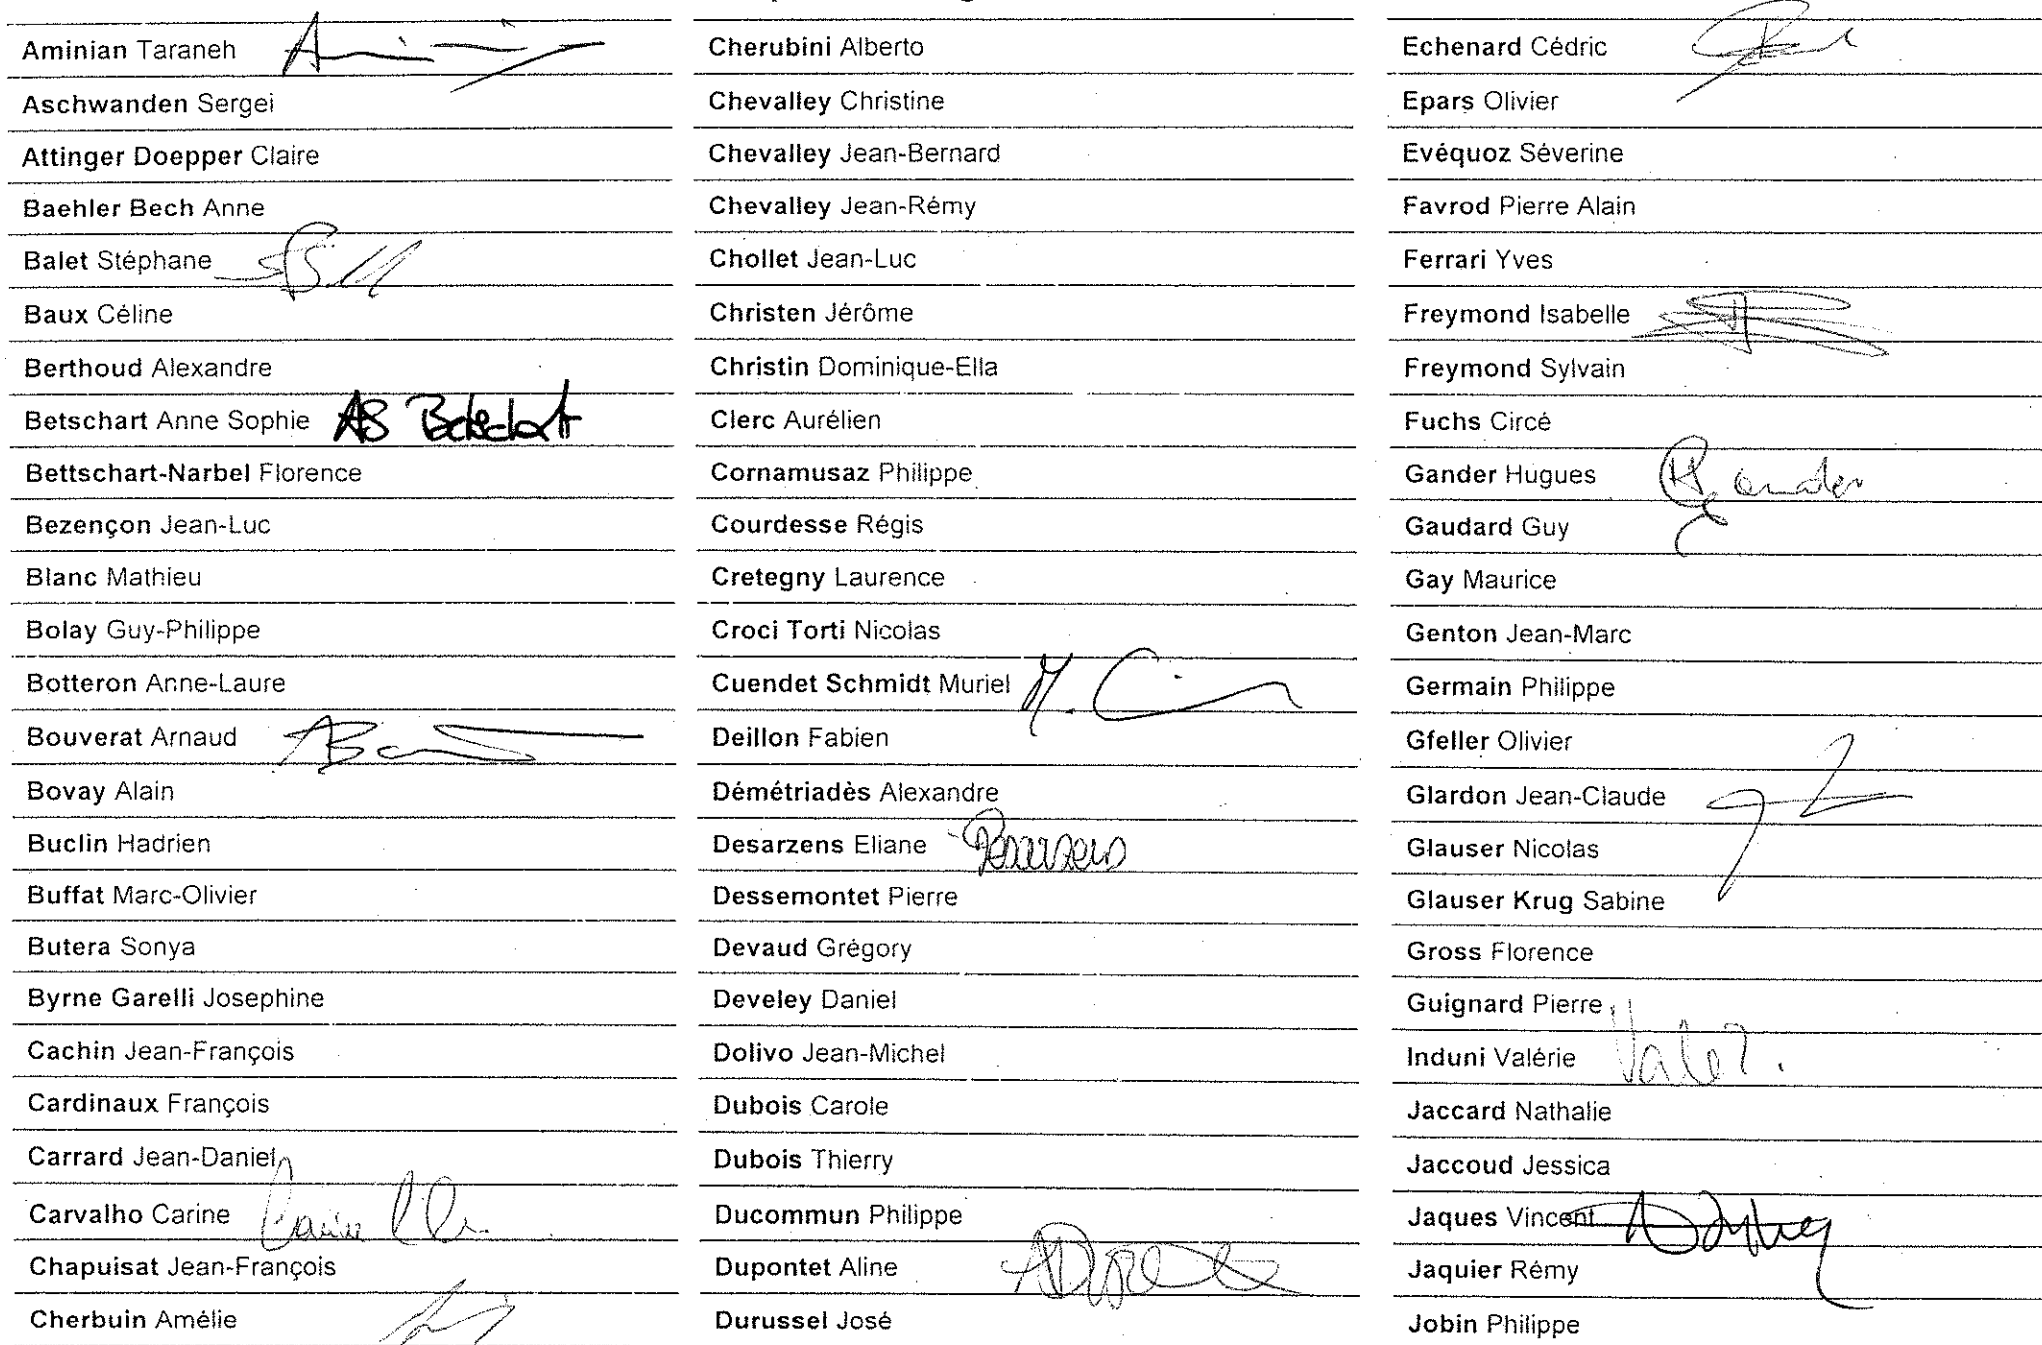 Aminian Taraneh
Aschwanden Sergei
Attinger Doepper Claire
Baehler Bech Anne
Balet Stéphane
Baux Céline
Berthoud Alexandre
Betschart Anne Sophie AS Betschart
Bettschart-Narbel Florence
Bezençon Jean-Luc
Blanc Mathieu
Bolay Guy-Philippe
Botteron Anne-Laure
Bouverat Arnaud
Bovay Alain
Buclin Hadrien
Buffat Marc-Olivier
Butera Sonya
Byrne Garelli Josephine
Cachin Jean-François
Cardinaux François
Carrard Jean-Daniel
Carvalho Carine Carine
Chapuisat Jean-François
Cherbuin Amélie
Cherubini Alberto
Chevalley Christine
Chevalley Jean-Bernard
Chevalley Jean-Rémy
Chollet Jean-Luc
Christen Jérôme
Christin Dominique-Ella
Clerc Aurélien
Cornamusaz Philippe
Courdesse Régis
Cretegny Laurence
Croci Torti Nicolas
Cuendet Schmidt Muriel
Deillon Fabien
Démétriadès Alexandre
Desarzens Eliane Desarzens
Dessemontet Pierre
Devaud Grégory
Develey Daniel
Dolivo Jean-Michel
Dubois Carole
Dubois Thierry
Ducommun Philippe
Dupontet Aline
Durussel José
Echenard Cédric
Epars Olivier
Evéquoz Séverine
Favrod Pierre Alain
Ferrari Yves
Freymond Isabelle
Freymond Sylvain
Fuchs Circé
Gander Hugues H Gander
Gaudard Guy
Gay Maurice
Genton Jean-Marc
Germain Philippe
Gfeller Olivier
Glardon Jean-Claude
Glauser Nicolas
Glauser Krug Sabine
Gross Florence
Guignard Pierre
Induni Valérie
Jaccard Nathalie
Jaccoud Jessica
Jaques Vincent
Jaquier Rémy
Jobin Philippe